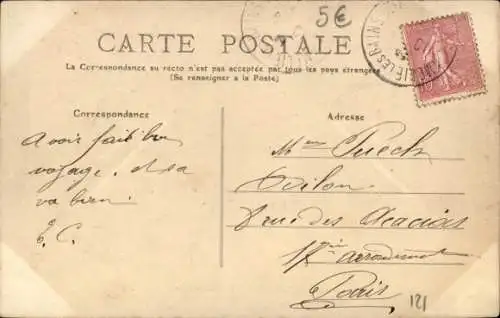 5€
CARTE POSTALE
La Correspondance au recto n'est pas acceptée par tous les pays étrangers
(Se renseigner a la Poste)
Correspondance
Adresse
Avoir fait bon
voyage. et sa
va bien.
E. C.
Mme Puech
Odilon
8 rue des Acacias
17ème arrondiment
Paris
121